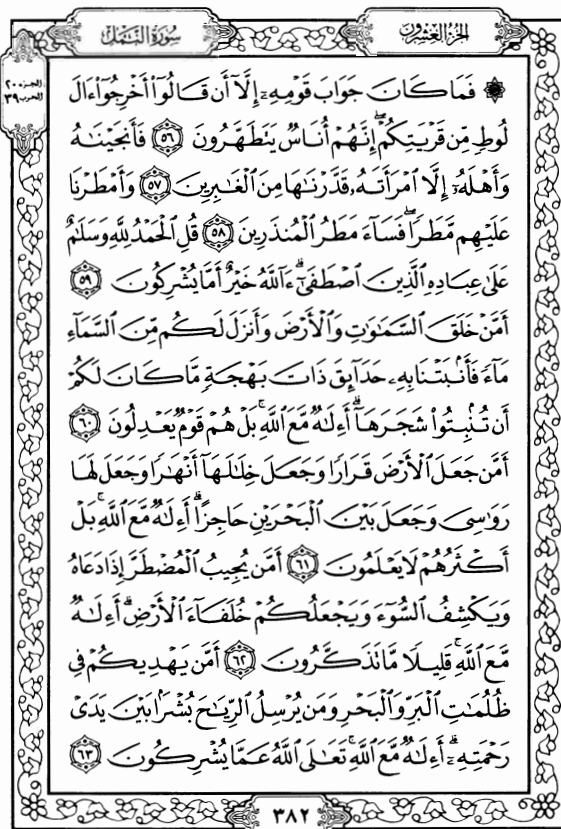 سُورَةُ النَّمْلِ
الجُزْءُ العِشْرُونَ
الجزء ٢٠
الحزب ٣٩
۞ فَمَا كَانَ جَوَابَ قَوْمِهِۦٓ إِلَّآ أَن قَالُوٓا۟ أَخْرِجُوٓا۟ ءَالَ
لُوطٍ مِّن قَرْيَتِكُمْ ۖ إِنَّهُمْ أُنَاسٌ يَتَطَهَّرُونَ ٥٦ فَأَنجَيْنَـٰهُ
وَأَهْلَهُۥٓ إِلَّا ٱمْرَأَتَهُۥ قَدَّرْنَـٰهَا مِنَ ٱلْغَـٰبِرِينَ ٥٧ وَأَمْطَرْنَا
عَلَيْهِم مَّطَرًا ۖ فَسَآءَ مَطَرُ ٱلْمُنذَرِينَ ٥٨ قُلِ ٱلْحَمْدُ لِلَّهِ وَسَلَـٰمٌ
عَلَىٰ عِبَادِهِ ٱلَّذِينَ ٱصْطَفَىٰٓ ۗ ءَآللَّهُ خَيْرٌ أَمَّا يُشْرِكُونَ ٥٩
أَمَّنْ خَلَقَ ٱلسَّمَـٰوَٰتِ وَٱلْأَرْضَ وَأَنزَلَ لَكُم مِّنَ ٱلسَّمَآءِ
مَآءً فَأَنۢبَتْنَا بِهِۦ حَدَآئِقَ ذَاتَ بَهْجَةٍ مَّا كَانَ لَكُمْ
أَن تُنۢبِتُوا۟ شَجَرَهَآ ۗ أَءِلَـٰهٌ مَّعَ ٱللَّهِ ۚ بَلْ هُمْ قَوْمٌ يَعْدِلُونَ ٦٠
أَمَّن جَعَلَ ٱلْأَرْضَ قَرَارًا وَجَعَلَ خِلَـٰلَهَآ أَنْهَـٰرًا وَجَعَلَ لَهَا
رَوَٰسِىَ وَجَعَلَ بَيْنَ ٱلْبَحْرَيْنِ حَاجِزًا ۗ أَءِلَـٰهٌ مَّعَ ٱللَّهِ ۚ بَلْ
أَكْثَرُهُمْ لَا يَعْلَمُونَ ٦١ أَمَّن يُجِيبُ ٱلْمُضْطَرَّ إِذَا دَعَاهُ
وَيَكْشِفُ ٱلسُّوٓءَ وَيَجْعَلُكُمْ خُلَفَآءَ ٱلْأَرْضِ ۗ أَءِلَـٰهٌ
مَّعَ ٱللَّهِ ۚ قَلِيلًا مَّا تَذَكَّرُونَ ٦٢ أَمَّن يَهْدِيكُمْ فِى
ظُلُمَـٰتِ ٱلْبَرِّ وَٱلْبَحْرِ وَمَن يُرْسِلُ ٱلرِّيَـٰحَ بُشْرًۢا بَيْنَ يَدَىْ
رَحْمَتِهِۦٓ ۗ أَءِلَـٰهٌ مَّعَ ٱللَّهِ ۚ تَعَـٰلَى ٱللَّهُ عَمَّا يُشْرِكُونَ ٦٣
٣٨٢